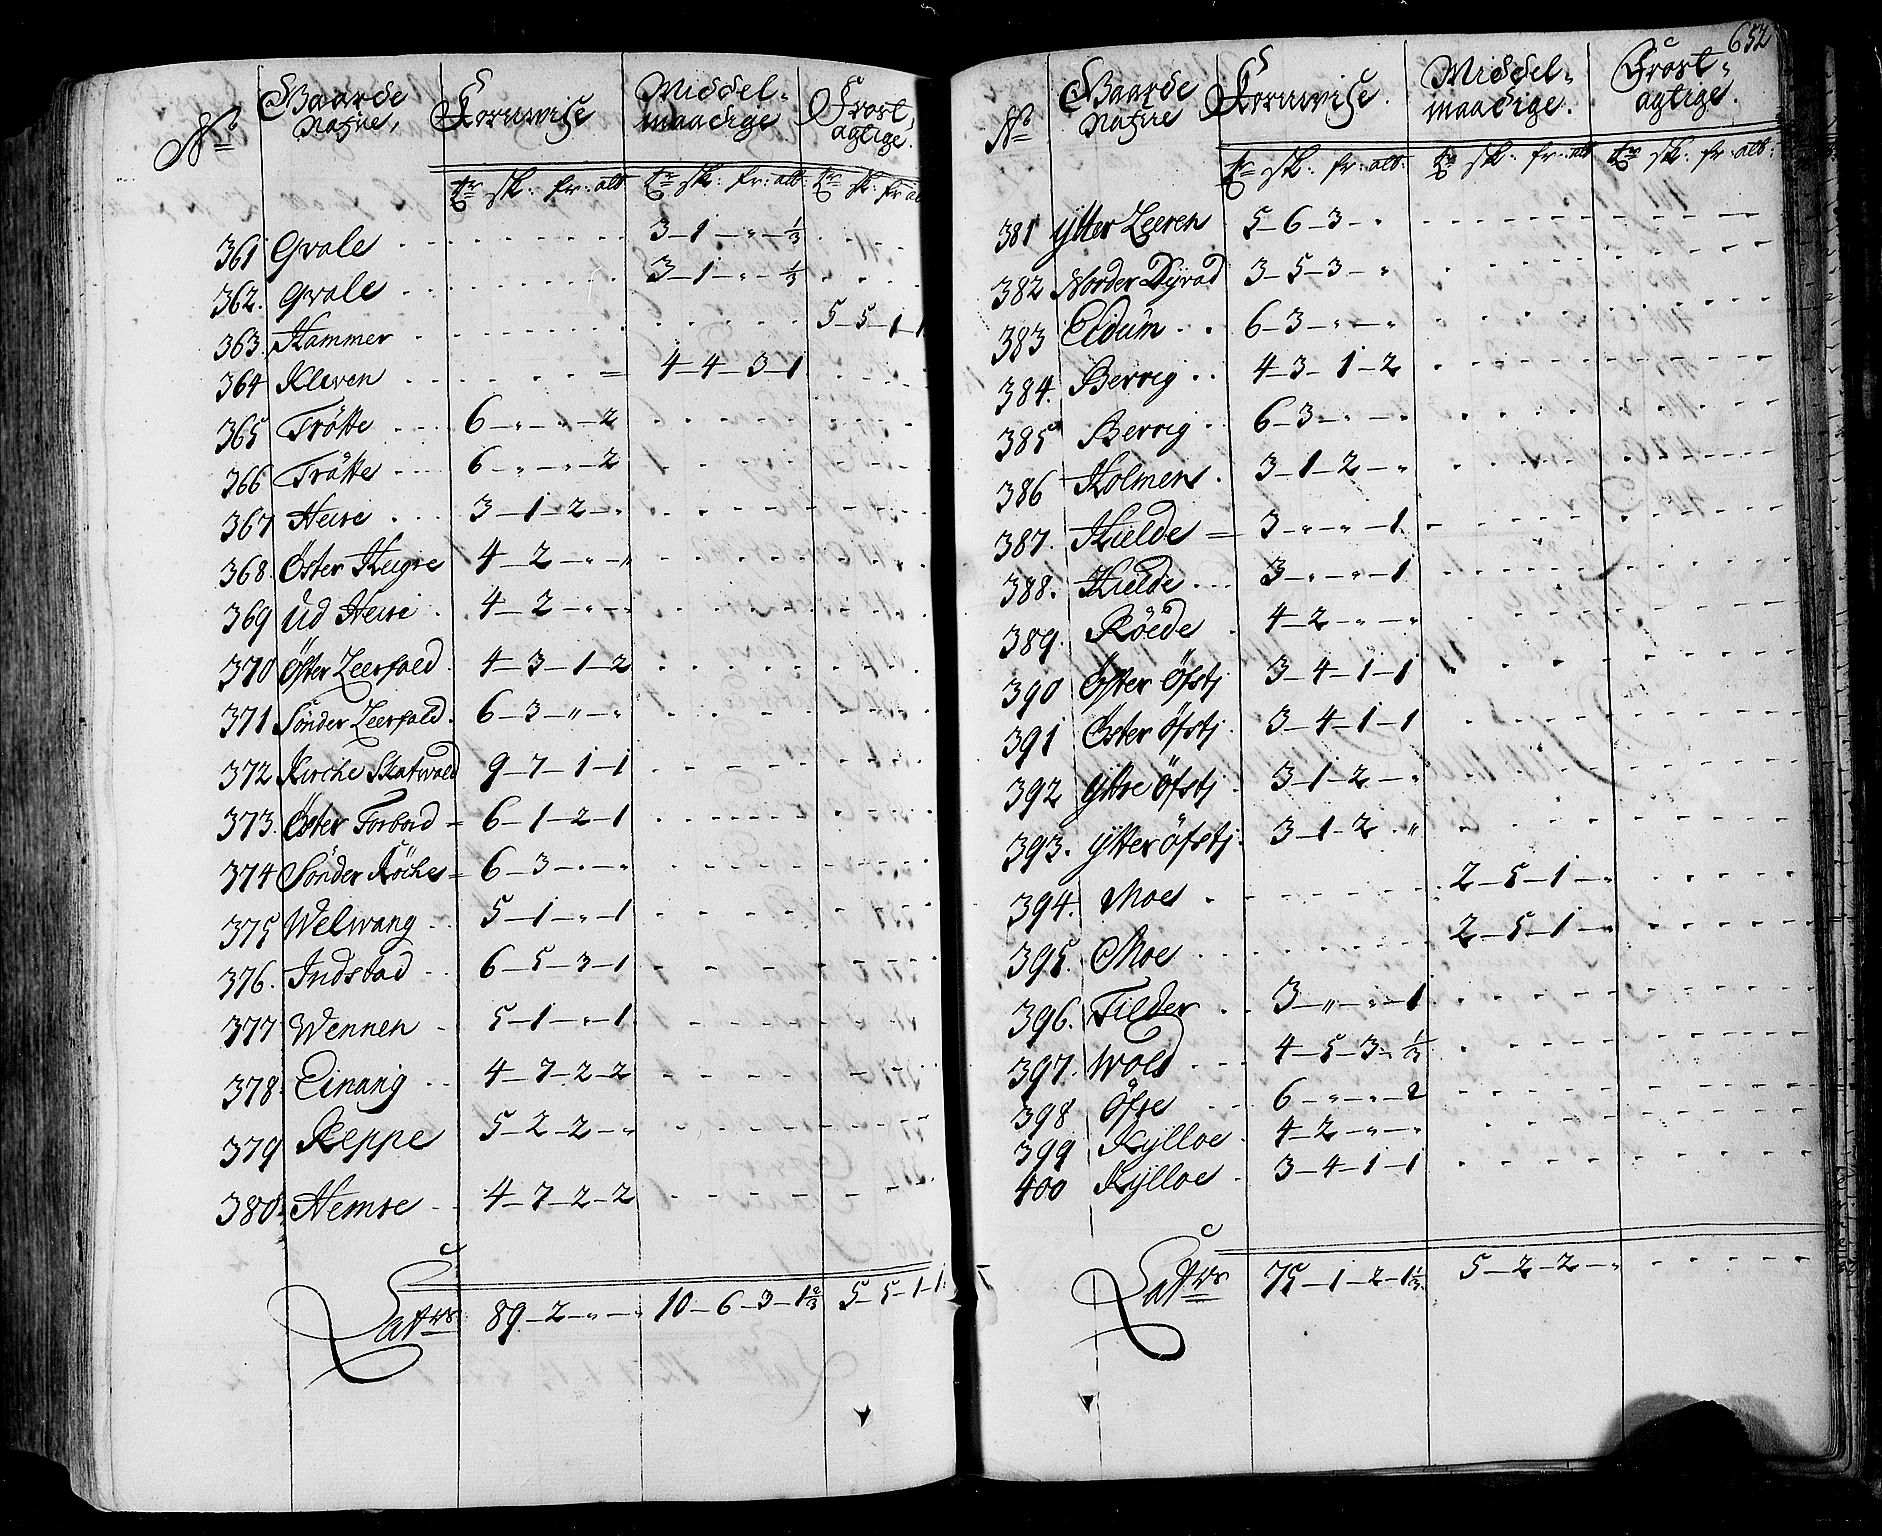 No Gaarde Nafne, Kornwise Middel- maadige Frost, agtige.
tr sk: fr: alb tr sk: fr: alb: tr sk: fr: al
361 Gvale 3-1-"-1/3
362. Gvale 3-1-"-1/3
363. Hammer 5-5-1-1
364 Kleven 4-4-3-1
365 Trötte 6-"-"-2
366 Trötte 6-"-"-2
367 Heire 3-1-2-"
368. Öster Heigre 4-2-"-"
369 Ud Heire 4-2-"-"
370 Öster Leerfald 4-3-1-2
371 Sönder Leerfald. 6-3-"-"
372 Kirche Skatwald 9-7-1-1
373. Öster Forbord 6-1-2-1
374 Sönder Köches 6-3-"-"
375 Welwang 5-1-"-1
376. Indstad 6-5-3-1
377 Wennen 5-1-"-1
378. Einang 4-7-2-2
379 Reppe 5-2-2-"
380. Hemre 4-7-2-2
Lattus 89-2-"-" 10-6-3-1 2/3 5-5-1-1.
652
No Gaarde Nafne Kornwise. Middel- maadige. Frost- agtige.
tr sk: fr: alb: tr sk: fr: alb tr sk: fr: alb:
381 Ytter Leeren 5-6-3-"
382 Norder Dyrad 3-5-3-"
383 Eidum 6-3-"-"
384. Berrig 4-3-1-2
385 Berrig 6-3-"-"
386 Holmen 3-1-2-"
387. Hielde 3-"-"-1
388. Hielde 3-"-"-1
389. Röede 4-2-"-"
390 Öfter Öfstj 3-4-1-1
391 Öster Öfstj 3-4-1-1
392 Yttre Öfstj 3-1-2-"
393. Ytter öfstj 3-1-2-"
394. Moe 2-5-1-"
395. Moe 2-5-1-"
396. Tilder 3-"-"-1
397. Wold 4-5-3-1/3
398 Öfre 6-"-"-2
399 Kylloe 4-2-"-"
400 Kylloe 3-4-1-1
Lattus 75-1-2-1 1/3. 5-2-2-"